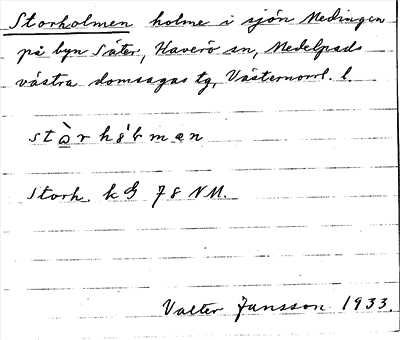 Storholmen holme i sjön Medingen
på byn Säter, Haverö sn, Medelpads
västra domsagas tg, Västernorrl. l.
Storh. k G 78 NM.
Valter Jansson 1933.